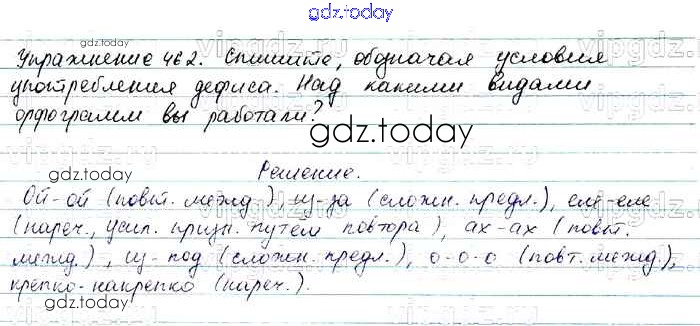 gdz.today
Упражнение 462. Спишите, обозначая условия
gdz.today
употребления дефиса. Над какими видами
орфограмм вы работали?
gdz.today
gdz.today
Решение.
Ой-ой (повт. межд.), из-за (сложн. предл.), еле-еле
(нареч., усил. призн. путём повтора), ах-ах (повт.
межд.), из-под (сложн. предл.), о-о-о (повт. межд.),
крепко-накрепко (нареч.).
gdz.today